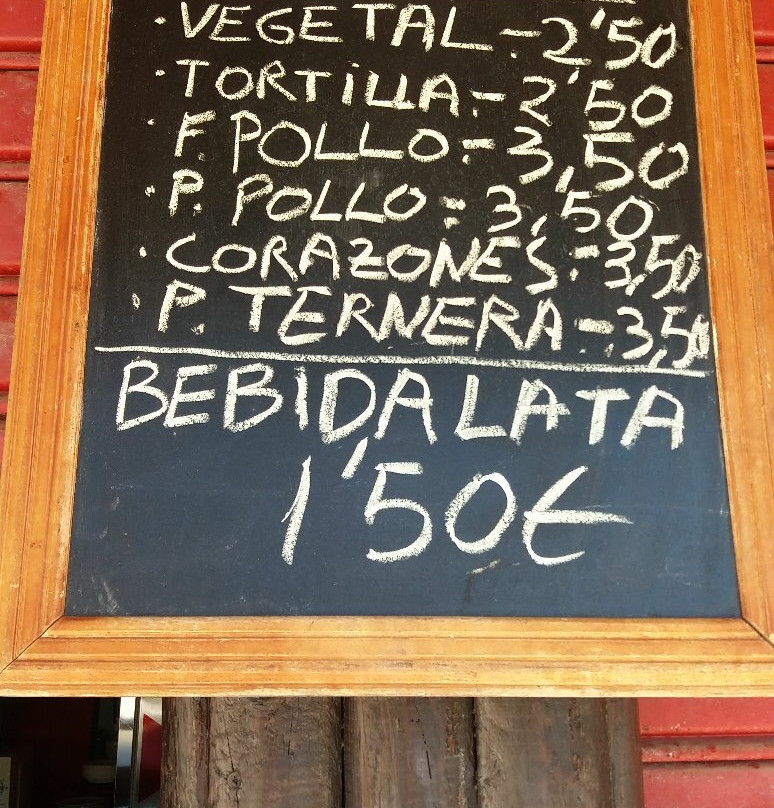 · VEGETAL - 2'50
· TORTILLA - 2'50
· F. POLLO - 3,50
· P. POLLO = 3,50
· CORAZONES - 3,50
· P. TERNERA - 3,50
BEBIDA LATA
1'50€